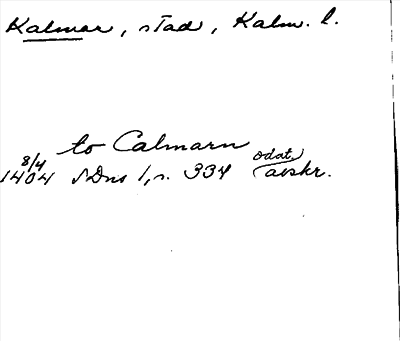 Kalmar, stad, Kalm. l.
to Calmarn
8/4 odat.
1404 SDns 1, s. 334 avskr.